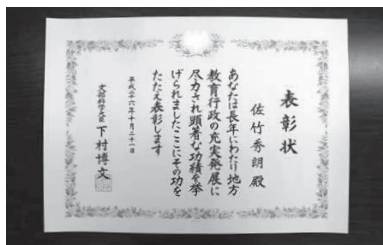 表彰状
佐竹秀朗殿
あなたは長年にわたり地方
教育行政の充実発展に
尽力され顕著な功績を挙
げられましたここにその功を
たたえ表彰します
平成二十六年十月二十一日
文部科学大臣 下村博文